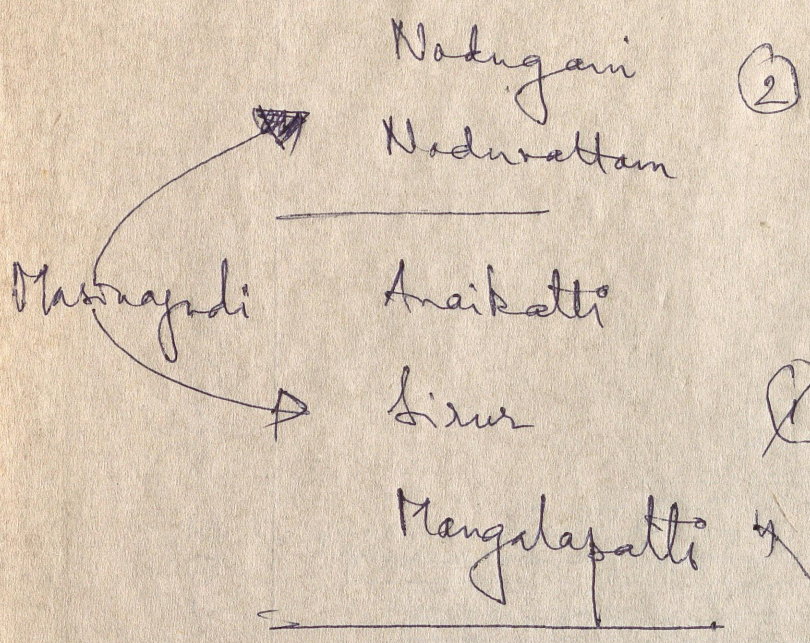 Nadugani
2
Naduvattam
Masinagudi
Anaikatti
Sirur
Mangalapatti